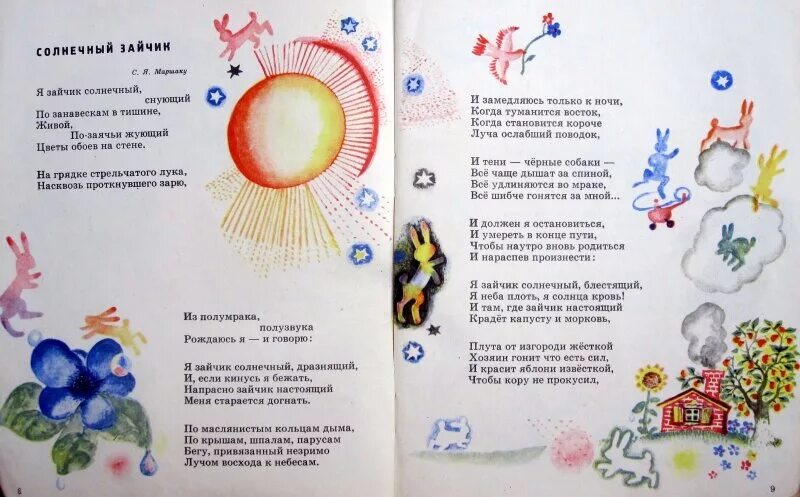 СОЛНЕЧНЫЙ ЗАЙЧИК
С. Я. Маршаку
Я зайчик солнечный,
снующий
По занавескам в тишине,
Живой,
По-заячьи жующий
Цветы обоев на стене.
На грядке стрельчатого лука,
Насквозь проткнувшего зарю,
Из полумрака,
полузвука
Рождаюсь я — и говорю:
Я зайчик солнечный, дразнящий,
И, если кинусь я бежать,
Напрасно зайчик настоящий
Меня старается догнать.
По маслянистым кольцам дыма,
По крышам, шпалам, парусам
Бегу, привязанный незримо
Лучом восхода к небесам.
8
И замедляюсь только к ночи,
Когда туманится восток,
Когда становится короче
Луча ослабший поводок,
И тени — чёрные собаки —
Всё чаще дышат за спиной,
Всё удлиняются во мраке,
Всё шибче гонятся за мной...
И должен я остановиться,
И умереть в конце пути,
Чтобы наутро вновь родиться
И нараспев произнести:
Я зайчик солнечный, блестящий,
Я неба плоть, я солнца кровь!
И там, где зайчик настоящий
Крадёт капусту и морковь,
Плута от изгороди жёсткой
Хозяин гонит что есть сил,
И красит яблони извёсткой,
Чтобы кору не прокусил,
9